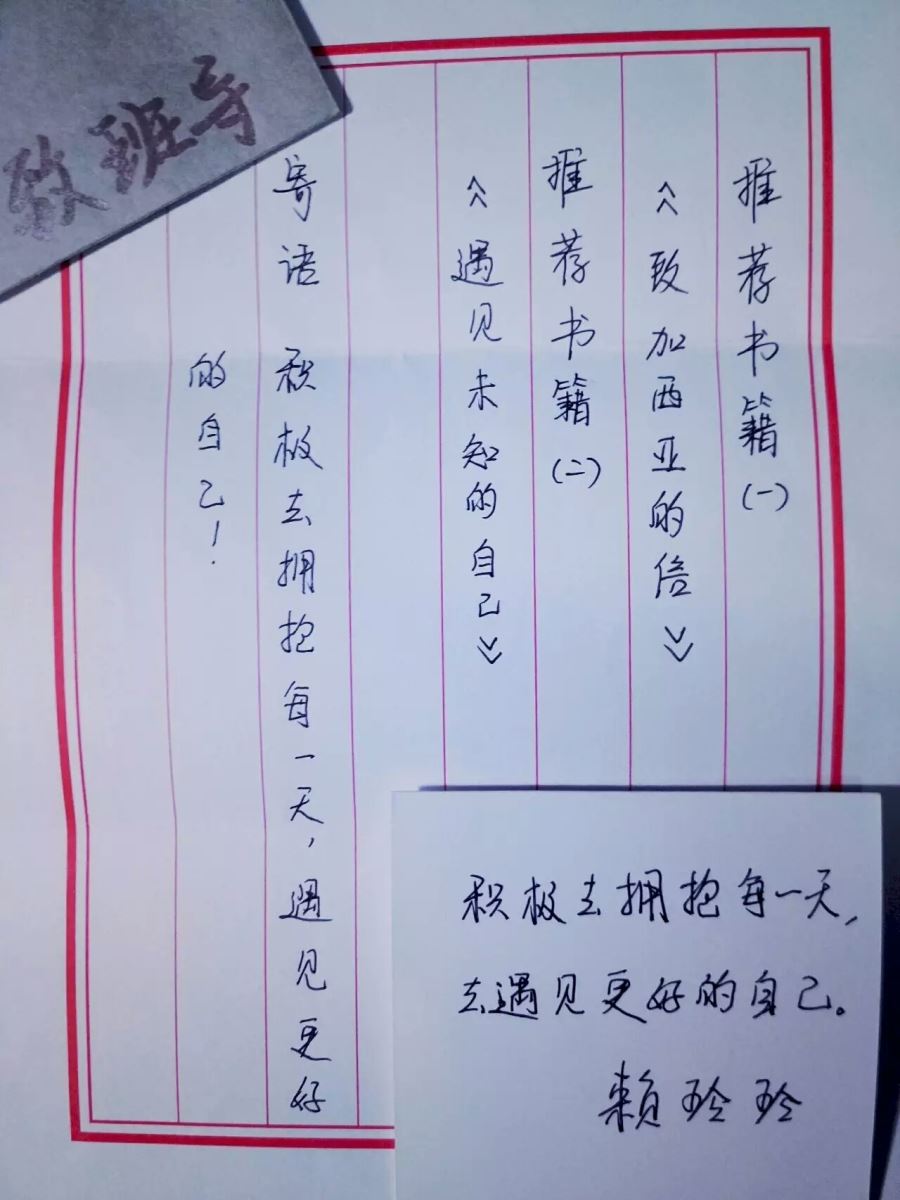 致班导
推荐书籍(一)
《致加西亚的信》
推荐书籍(二)
《遇见未知的自己》
寄语 积极去拥抱每一天,遇见更好
的自己!
积极去拥抱每一天,
去遇见更好的自己。
赖玲玲